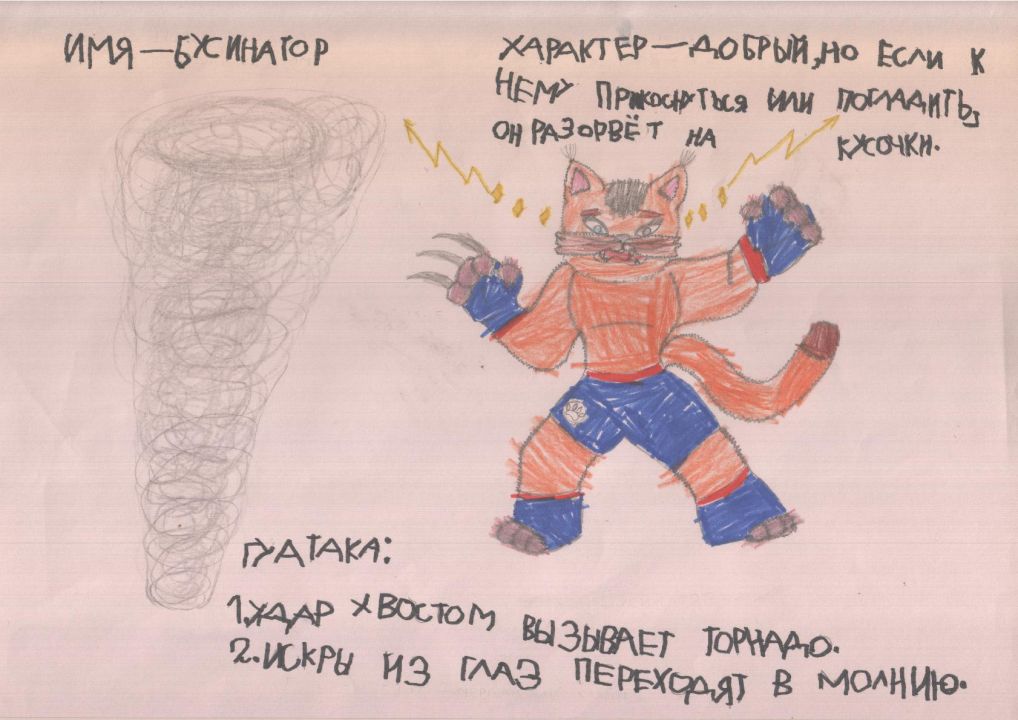 ИМЯ—БУСИНАТОР
ХАРАКТЕР—ДОБРЫЙ,НО ЕСЛИ К
НЕМУ ПРИКОСНУТЬСЯ ИЛИ ПОГЛАДИТЬ,
ОН РАЗОРВЁТ НА КУСОЧКИ.
ГУАТАКА:
1.УДАР ХВОСТОМ ВЫЗЫВАЕТ ТОРНАДО.
2.ИСКРЫ ИЗ ГЛАЗ ПЕРЕХОДЯТ В МОЛНИЮ.